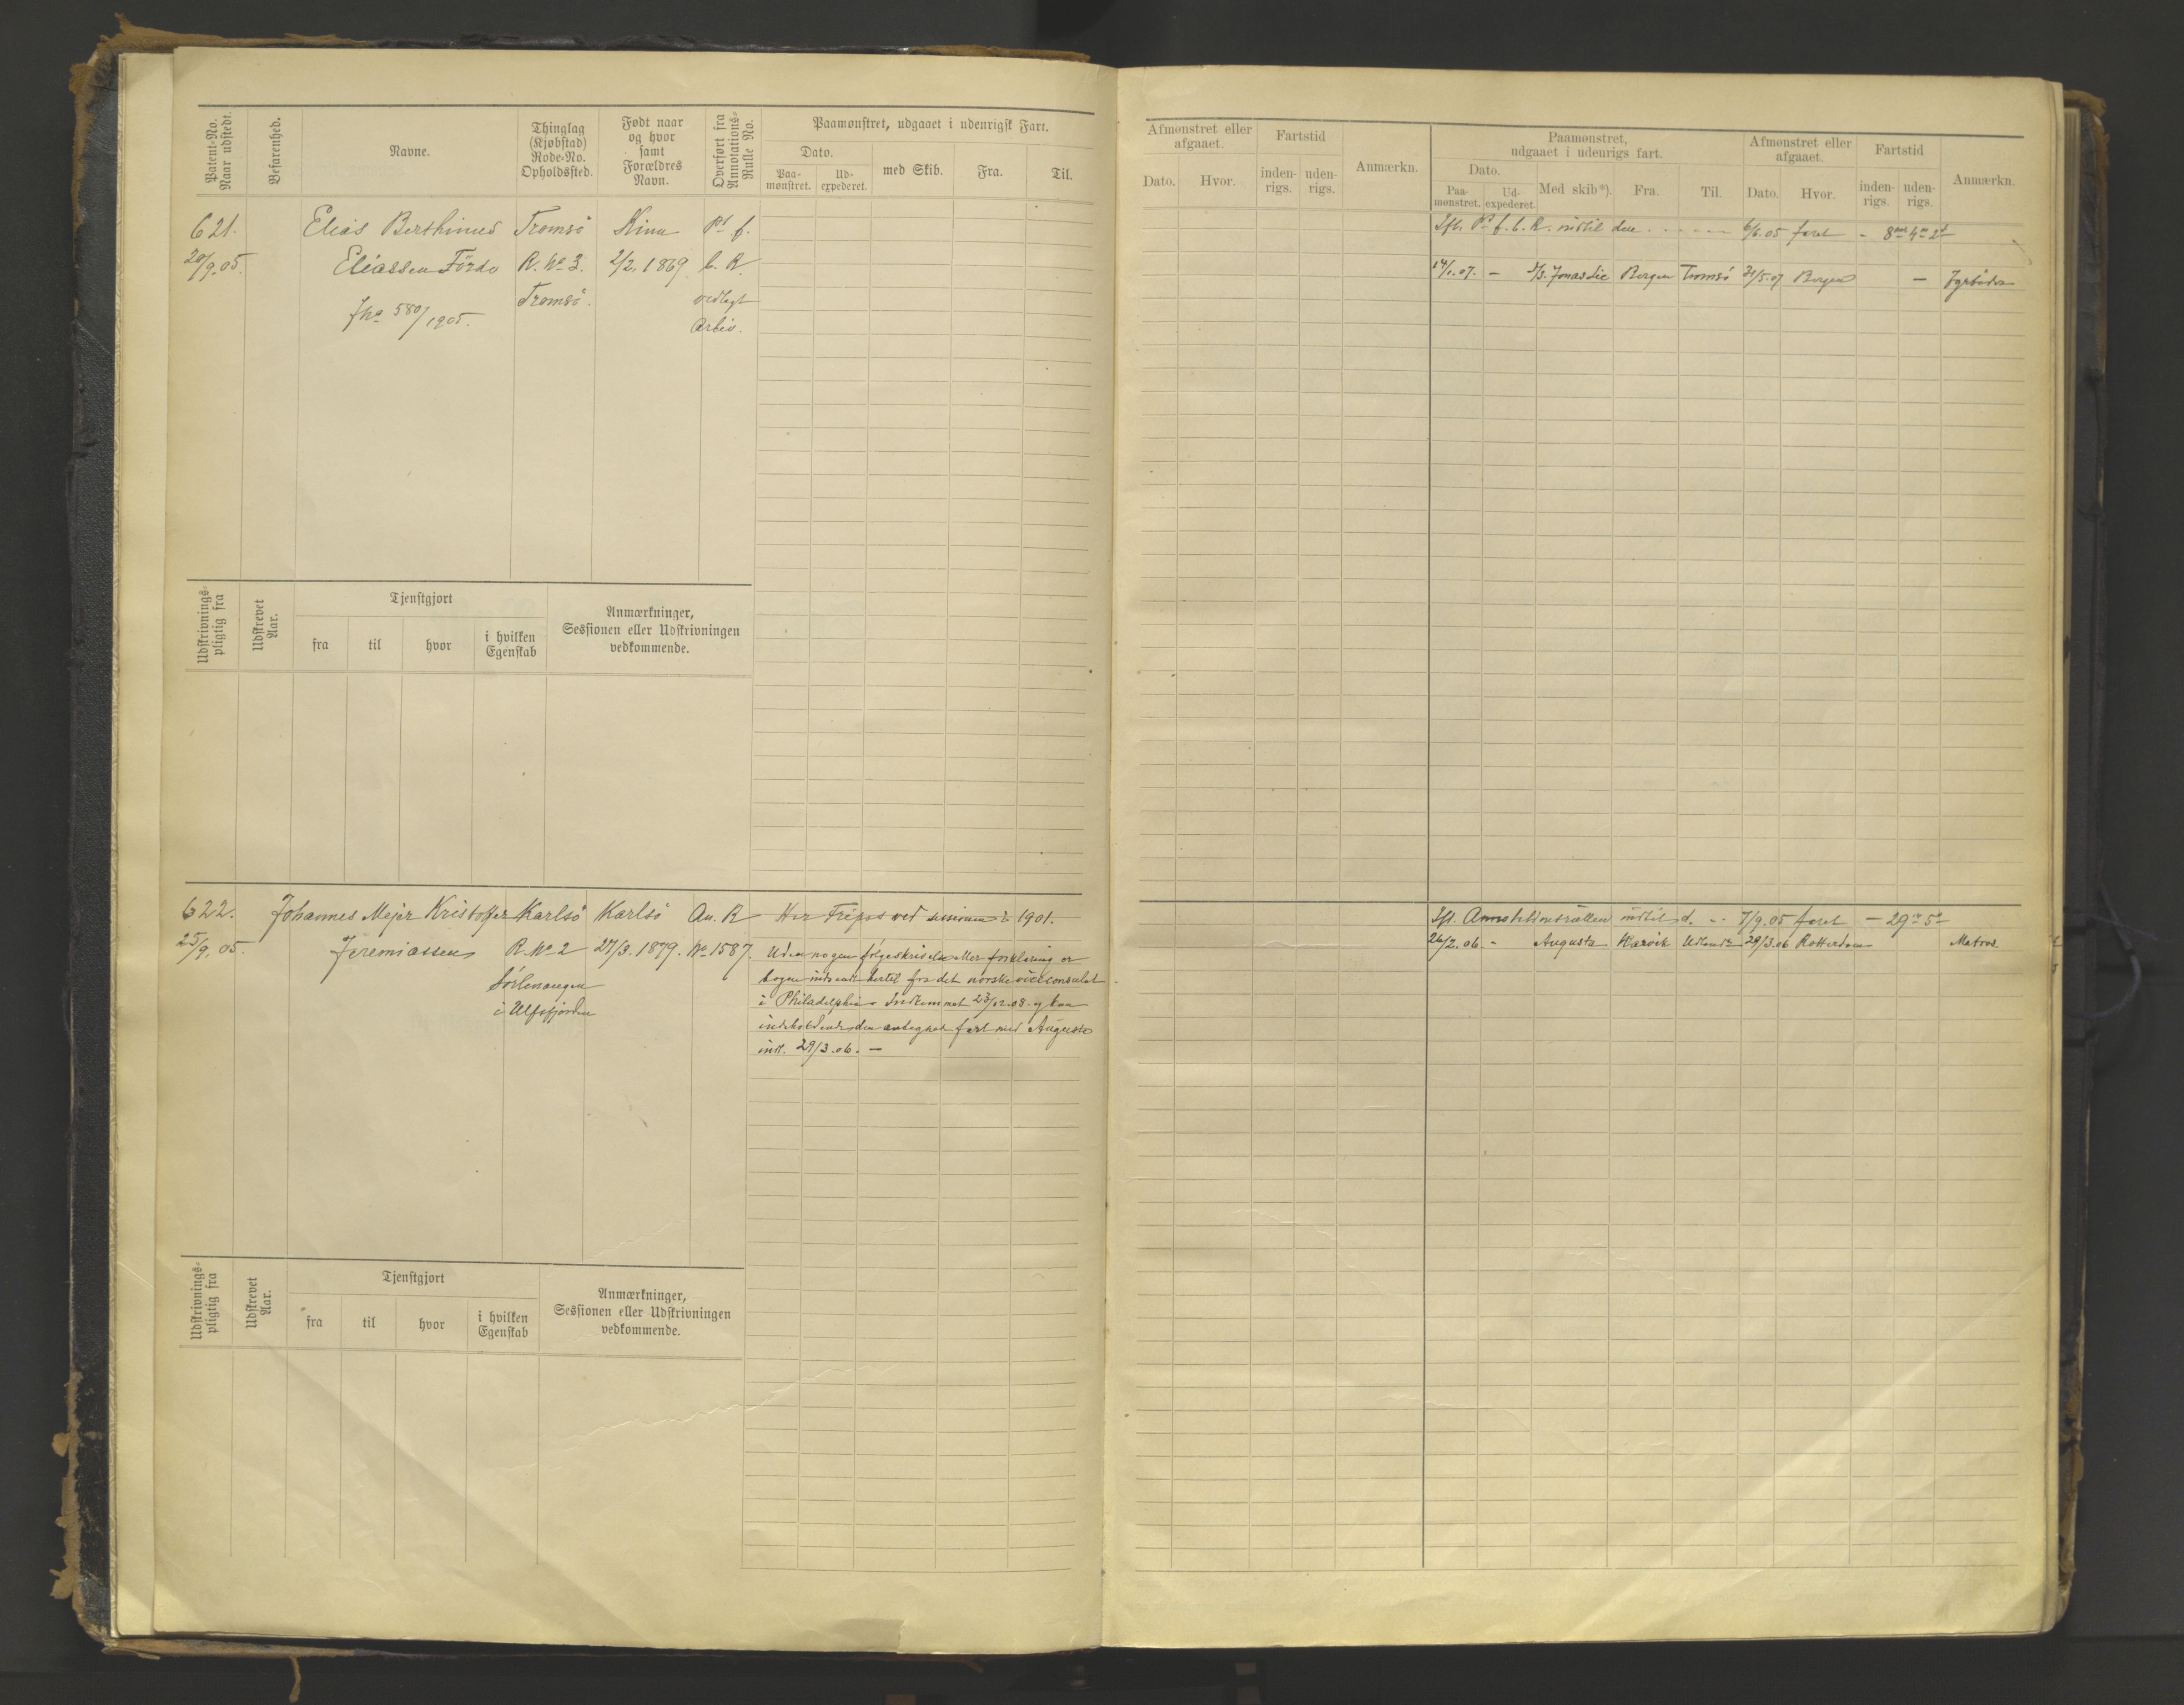 Patent-No.
Naar udstedt.
Befarenhed.
Navne.
Thinglag
(Kjøbstad)
Rode-No.
Opholdssted.
Født naar
og hvor
samt
Forældres
Navn.
Overført fra
Annotations-
Rulle No.
Paamønstret, udgaaet i udenrigsk Fart.
Dato.
Paa-
mønstret.
Ud-
expederet.
med Skib.
Fra.
Til.
621.
20/9.05.
Elias Berthinus
Eliassen Förde
Jno 580/1905.
Tromsö
R. No 3.
Tromsö.
Kinn
2/2. 1869
Pt f.
b. R.
vedlagt
Arkiv.
Udskrivnings-
pligtig fra
Udskrevet
Aar.
Tjenstgjort
fra
til
hvor
i hvilken
Egenskab
Anmærkninger,
Sessionen eller Udskrivningen
vedkommende.
622.
25/9.05.
Johannes Mejer Kristoffer
Jeremiassen
Karlsö
R. No 2
Sörlenangen
i Ulfsfjorden
Karlsö
27/3. 1879.
An. R
No 1587.
Har Fripas ved sessionen i 1901.
Uden nogen følgeskrivelse eller forklaring er
bogen indsendt hertil fra det norske viceconsulat
i Philadelphia. Indkommet 23/12.08. og kun
indeholdende den antegnede fart med Augusta
indt. 29/3.06. —
Udskrivnings-
pligtig fra
Udskrevet
Aar.
Tjenstgjort
fra
til
hvor
i hvilken
Egenskab
Anmærkninger,
Sessionen eller Udskrivningen
vedkommende.
Afmønstret eller
afgaaet.
Dato.
Hvor.
Fartstid
inden-
rigs.
uden-
rigs.
Anmærkn.
Paamønstret,
udgaaet i udenrigs fart.
Dato.
Paa-
mønstret.
Ud-
expederet.
Med skib*).
Fra.
Til.
Afmønstret eller
afgaaet.
Dato.
Hvor.
Fartstid
inden-
rigs.
uden-
rigs.
Anmærkn.
Ifl. Pt f. b. R. indtil den - - - - - 6/6.05 faret - 8 aar 4 m 2 d
14/1.07. - D/S. Jonas Lie Bergen Tromsö 31/5.07 Bergen - Fyrböder
Ifl. Annotationsrullen indtil d. - - 7/9.05 faret - 29 m 5 d
26/2.06. - Augusta Narvik Udlandet 29/3.06 Rotterdam Matros.